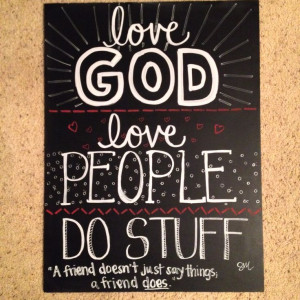 love
GOD
love
PEOPLE
DO STUFF
"A friend doesn't just say things;
a friend does.